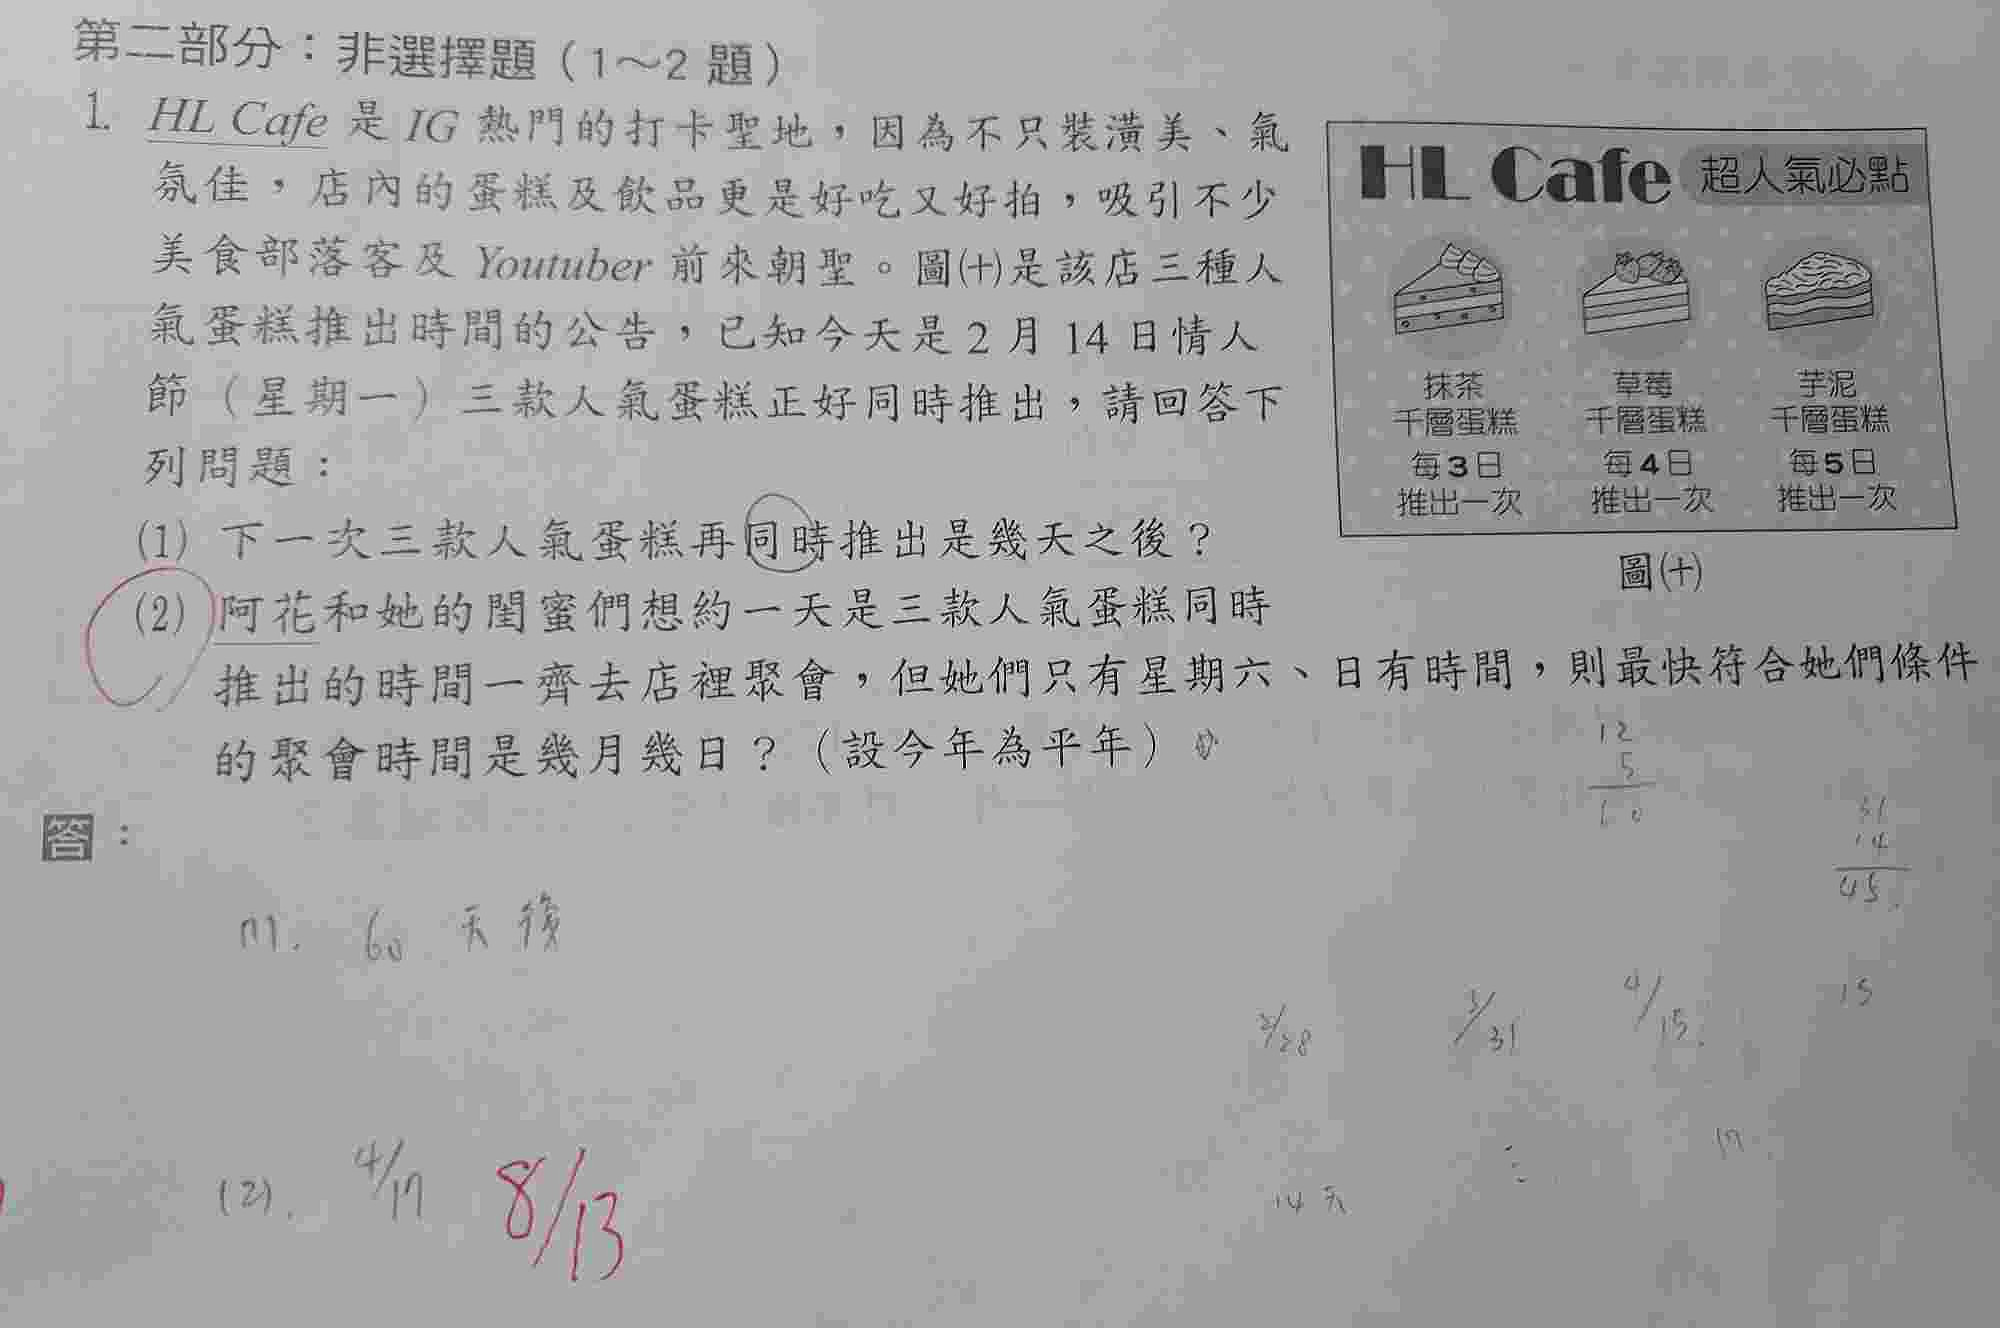 第二部分：非選擇題（1～2 題）
1. HL Cafe 是 IG 熱門的打卡聖地，因為不只裝潢美、氣
氛佳，店內的蛋糕及飲品更是好吃又好拍，吸引不少
美食部落客及 Youtuber 前來朝聖。圖(十)是該店三種人
氣蛋糕推出時間的公告，已知今天是 2 月 14 日情人
節（星期一）三款人氣蛋糕正好同時推出，請回答下
列問題：
(1) 下一次三款人氣蛋糕再同時推出是幾天之後？
(2) 阿花和她的閨蜜們想約一天是三款人氣蛋糕同時
推出的時間一齊去店裡聚會，但她們只有星期六、日有時間，則最快符合她們條件
的聚會時間是幾月幾日？（設今年為平年）
HL Cafe 超人氣必點
抹茶
千層蛋糕
每3日
推出一次
草莓
千層蛋糕
每4日
推出一次
芋泥
千層蛋糕
每5日
推出一次
圖(十)
答：
12
5
60
31
14
45.
(1). 60 天後
2/28
3/31
4/15.
15
(2). 4/17 8/13
14天
17.